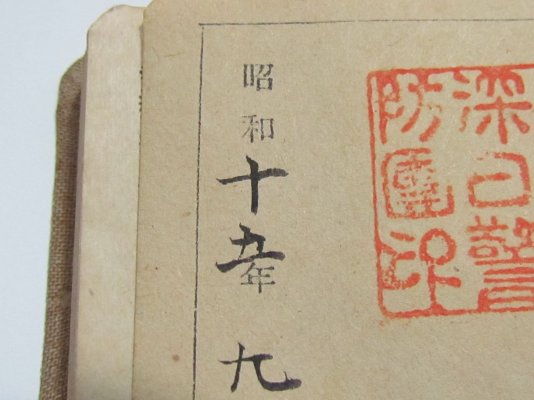 深警
防團印
昭和十五年九